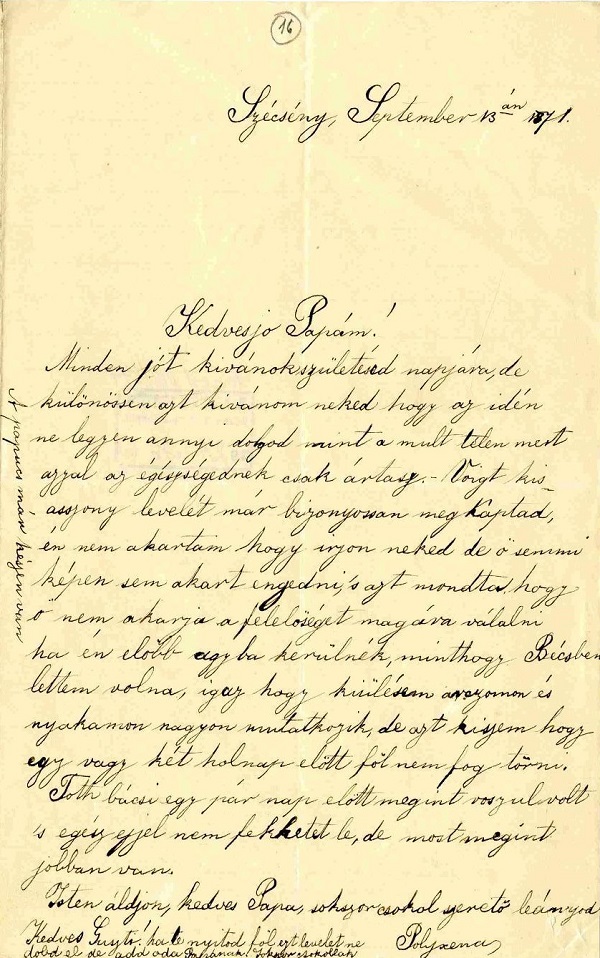 16
Szécsény, September 13án 1871.
Kedvesjo Papám!
Minden jót kivánokszületésed napjára, de
különössen azt kivánom neked hogy az idén
ne legyen annyi dolgod mint a mult télen mert
azzal az égésségednek csak ártasz. – Voigt kis-
asszony levelét már bizonyossan megkaptad,
én nem akartam hogy irjon neked de ő semmi
képen sem akart engedni, 's azt mondta, hogy
ő nem akarja a felelőséget magáva válalni
ha én előbb agyba kerülnék, minthogy Bécsben
lettem volna, igaz hogy kiülésem arczomon és
nyakamon nagyon mutatkozik, de azt hiszem hogy
egy vagy két holnap előtt föl nem fog törni.
Tóth bácsi egy pár nap előtt megint roszul volt
's egész ejjel nem fekhetet le, de most megint
jobban van.
Isten áldjon, kedves Papa, sokszor csokol szerető leányod
Polyxena
Kedves Guszti! ha te nyitod föl ezt levelet ne
dobd el de add oda Papának. Sokszor csokollak
A papucs már készen van